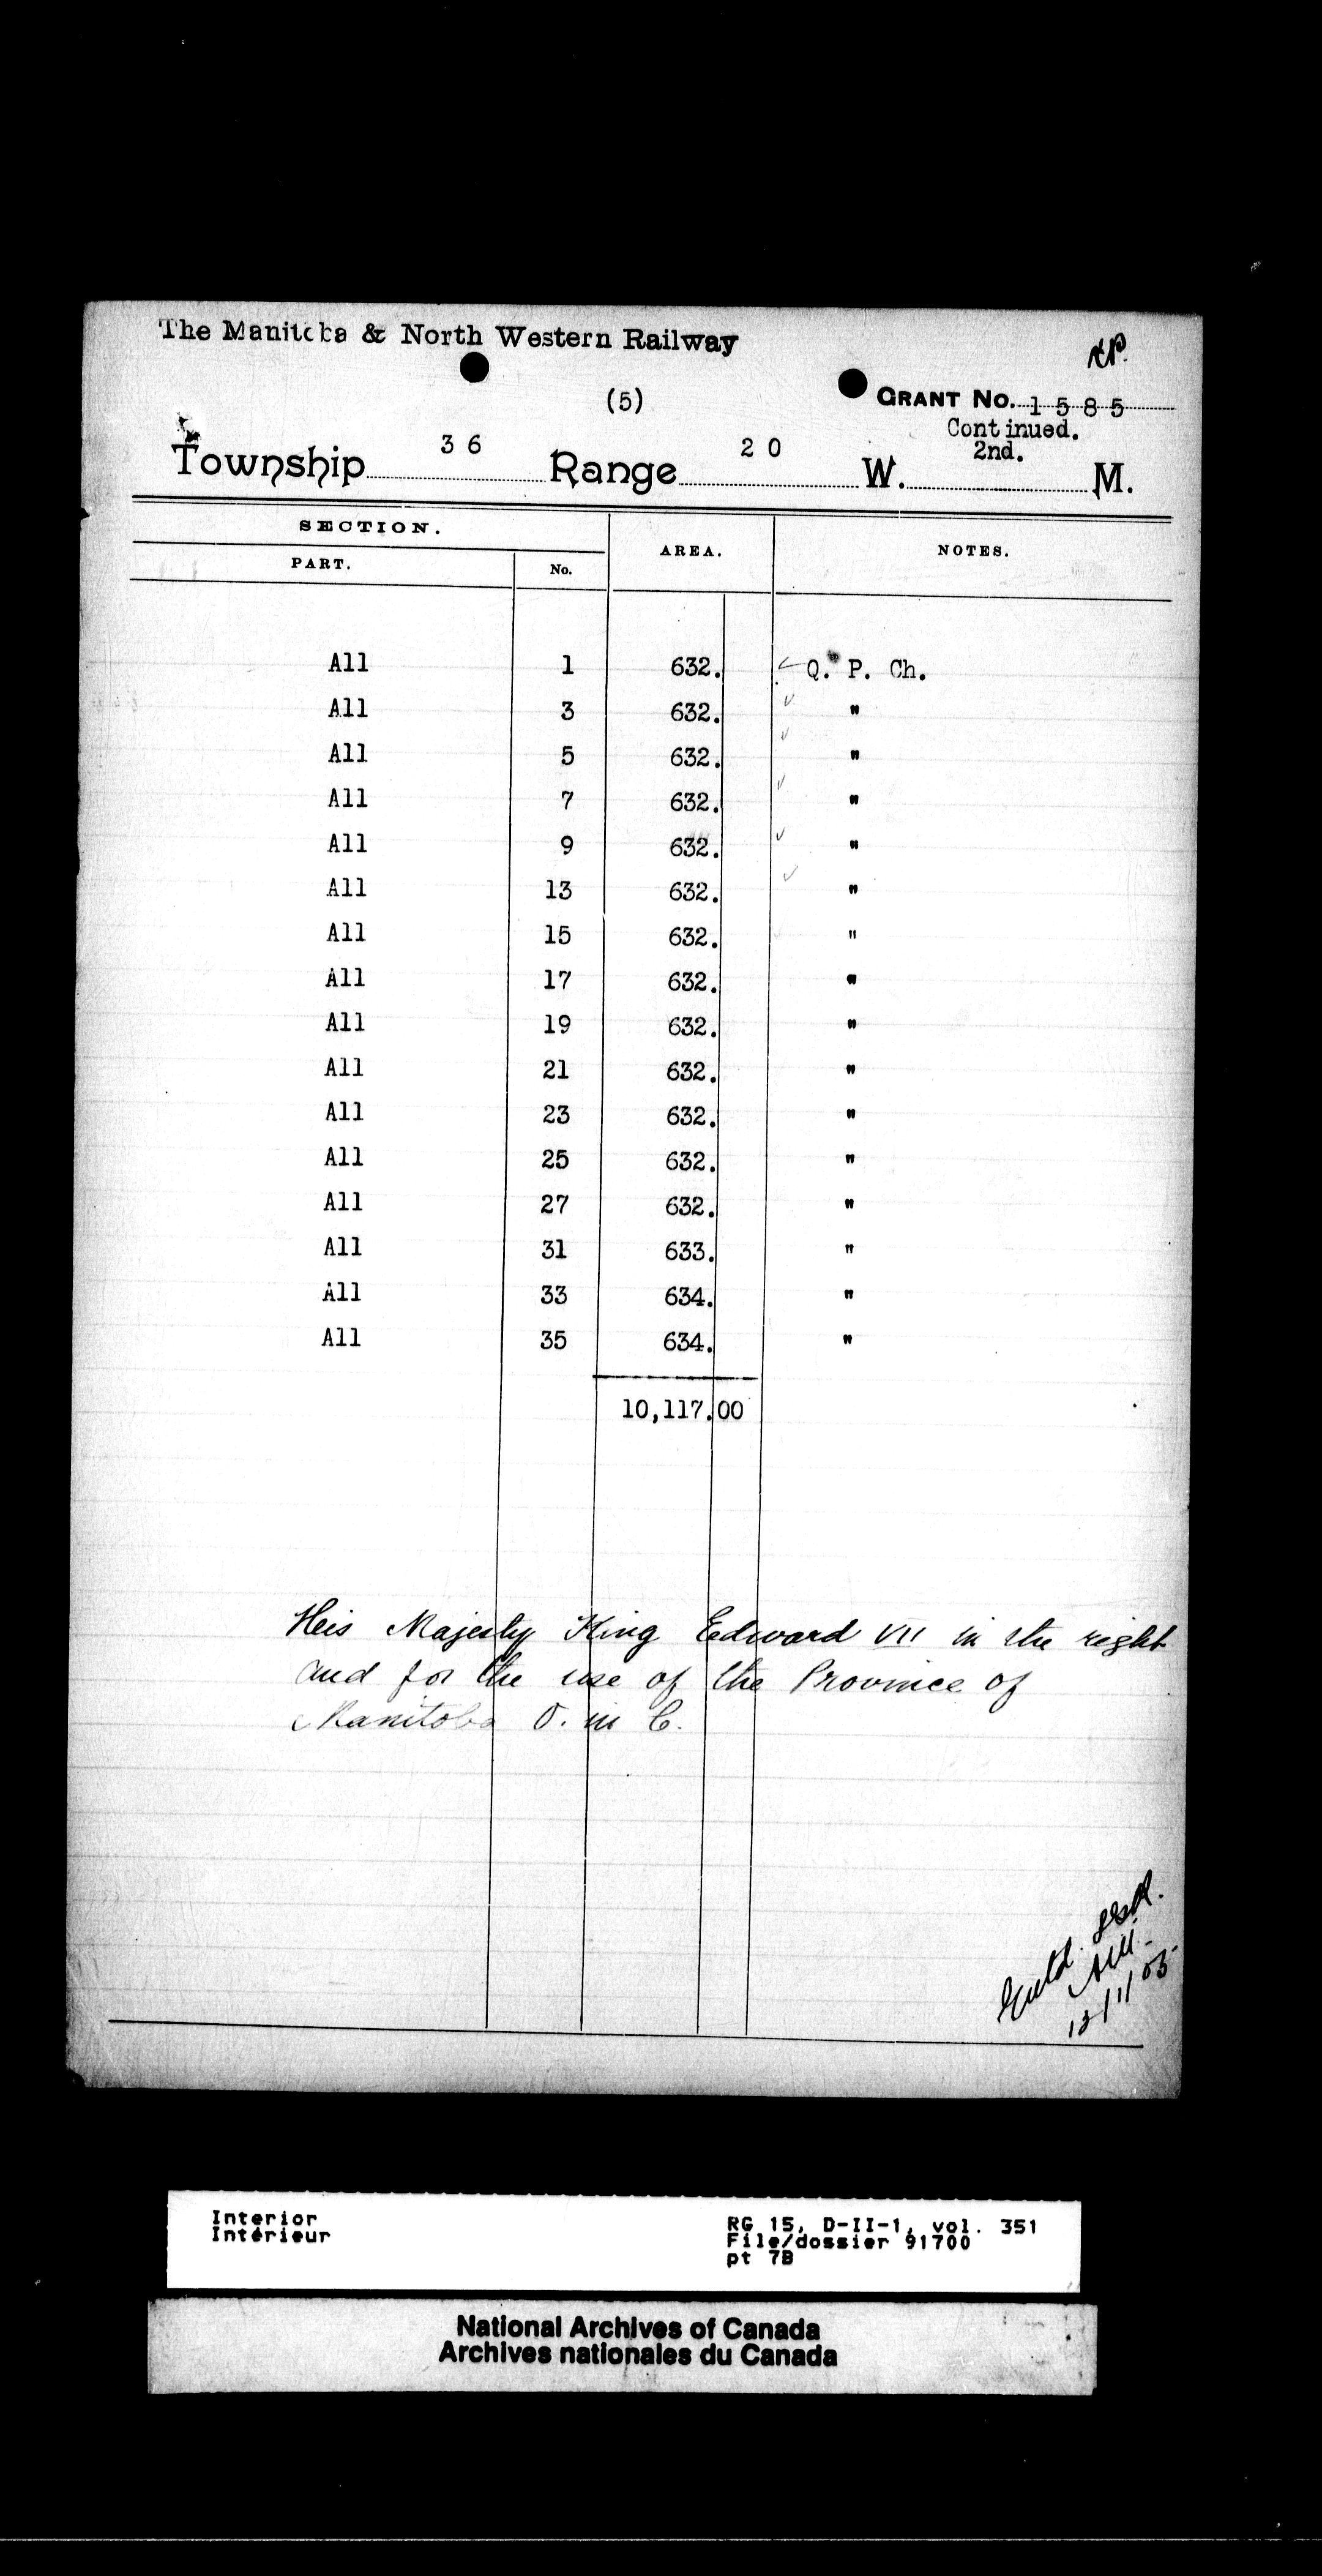 The Manitoba & North Western Railway
(5)
GRANT No. 1 5 8 5
Continued.
Township 3 6 Range 2 0 W. 2nd. M.
SECTION. AREA. NOTES.
PART. No.
All 1 632. Q. P. Ch.
All 3 632. "
All 5 632. "
All 7 632. "
All 9 632. "
All 13 632. "
All 15 632. "
All 17 632. "
All 19 632. "
All 21 632. "
All 23 632. "
All 25 632. "
All 27 632. "
All 31 633. "
All 33 634. "
All 35 634. "
10,117.00
His Majesty King Edward VII in the right
and for the use of the Province of
Manitoba O. in C.
Interior
Intérieur
RG 15, D-II-1, vol. 351
File/dossier 91700
pt 7B
National Archives of Canada
Archives nationales du Canada